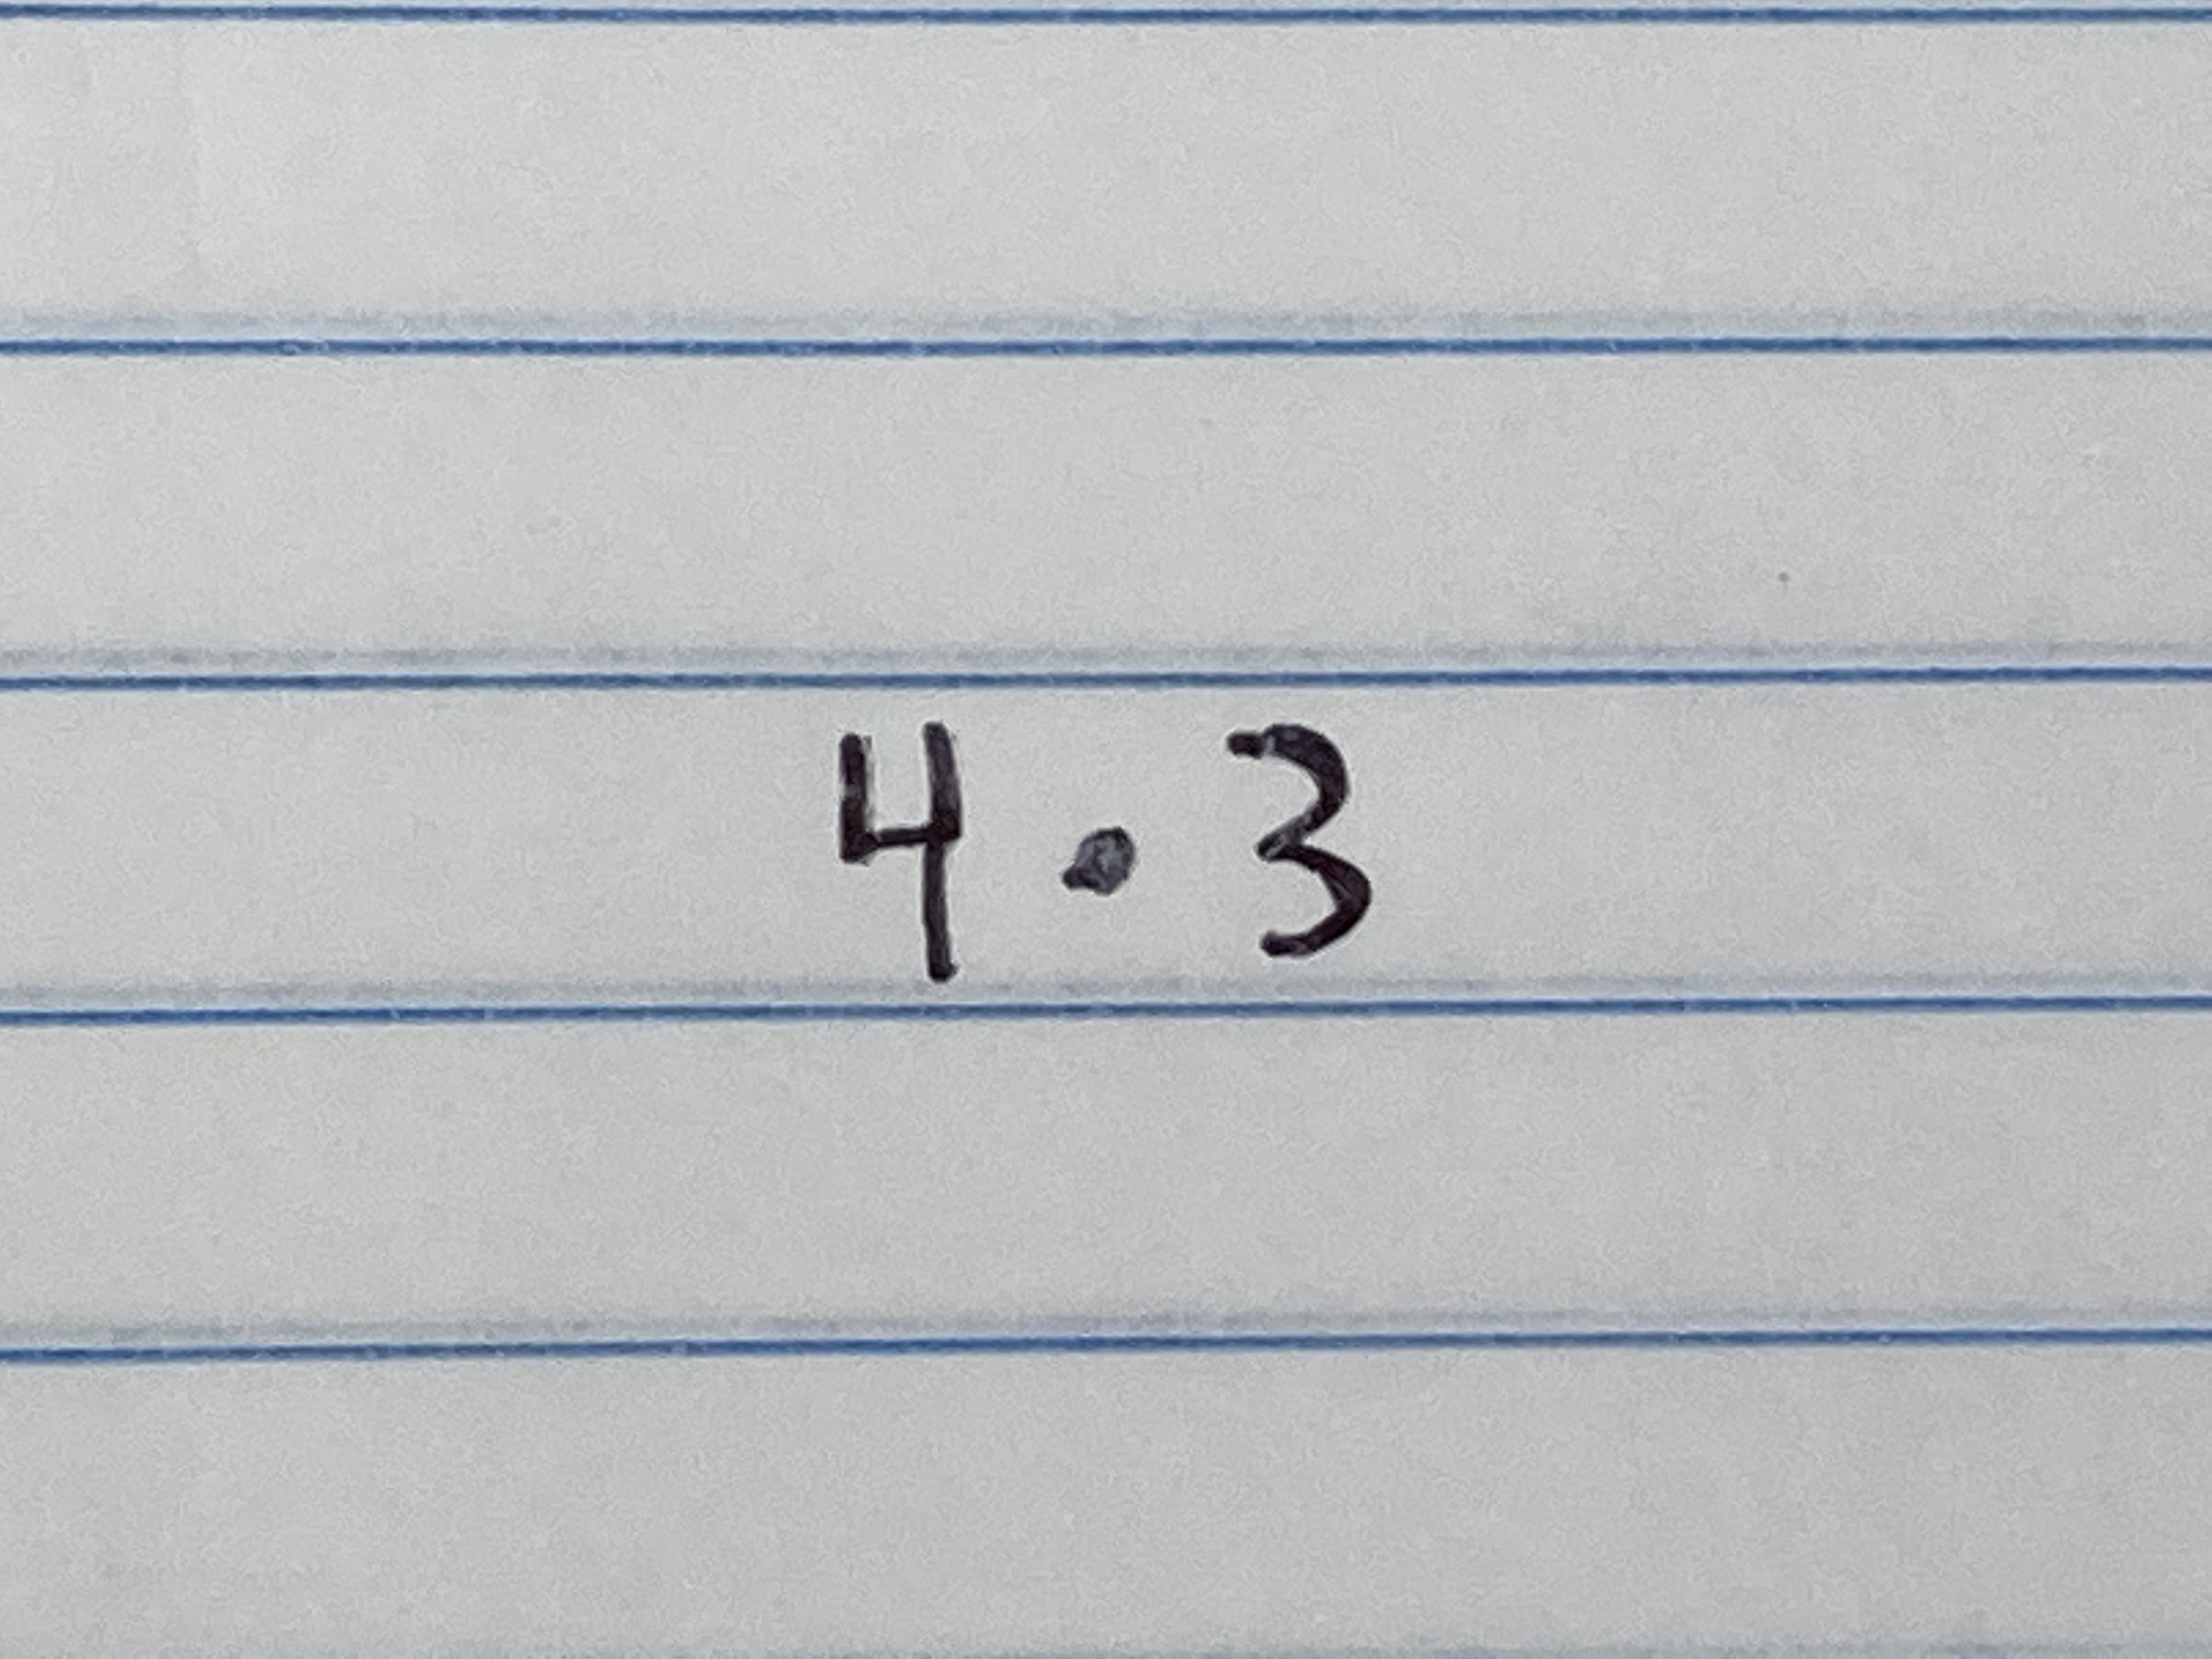 4 · 3